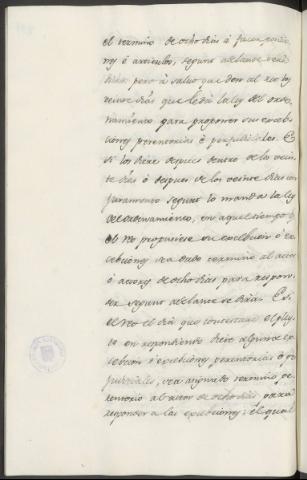 el termino de ocho dias á facer
ó articulos, segund adelante
pero á salvo que den al reo los
veinte dias que le da la ley del orde
namiento para proponer sus excep
ciones perentorias ó perjudiciales. E
si los dixe depues dentro de los vein
te dias ó depues de los veinte dias con
juramento segund lo manda la ley
del ordenamiento, en aquel tiempo q
el reo propusiere su excebcion ó ex
cebciones sea dado termino al actor
ó actores de ocho dias para respon
der segund adelante se dirá. E si
el reo el dia que contestare el pley
to en respondiendo dixe alguna ex
cebcion ó excebciones perentorias ó
perjudiciales, sea asignado termino, pe
rentorio al actor de ocho dias para
responder á las excebciones; el qual